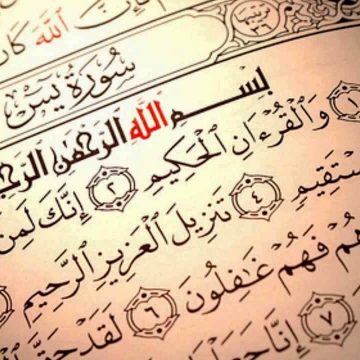 فَإِنَّ ٱللَّهَ كَا
سُورَةُ يسٓ
بِسْمِ ٱللَّهِ ٱلرَّحْمَٰنِ ٱلرَّحِ
١ وَٱلْقُرْءَانِ ٱلْحَكِيمِ ٢ إِنَّكَ لَمِنَ
سْتَقِيمٍ ٤ تَنزِيلَ ٱلْعَزِيزِ ٱلرَّحِيمِ
هُمْ فَهُمْ غَٰفِلُونَ ٦ لَقَدْ حَقَّ
٧ إِنَّا جَعَلْنَا